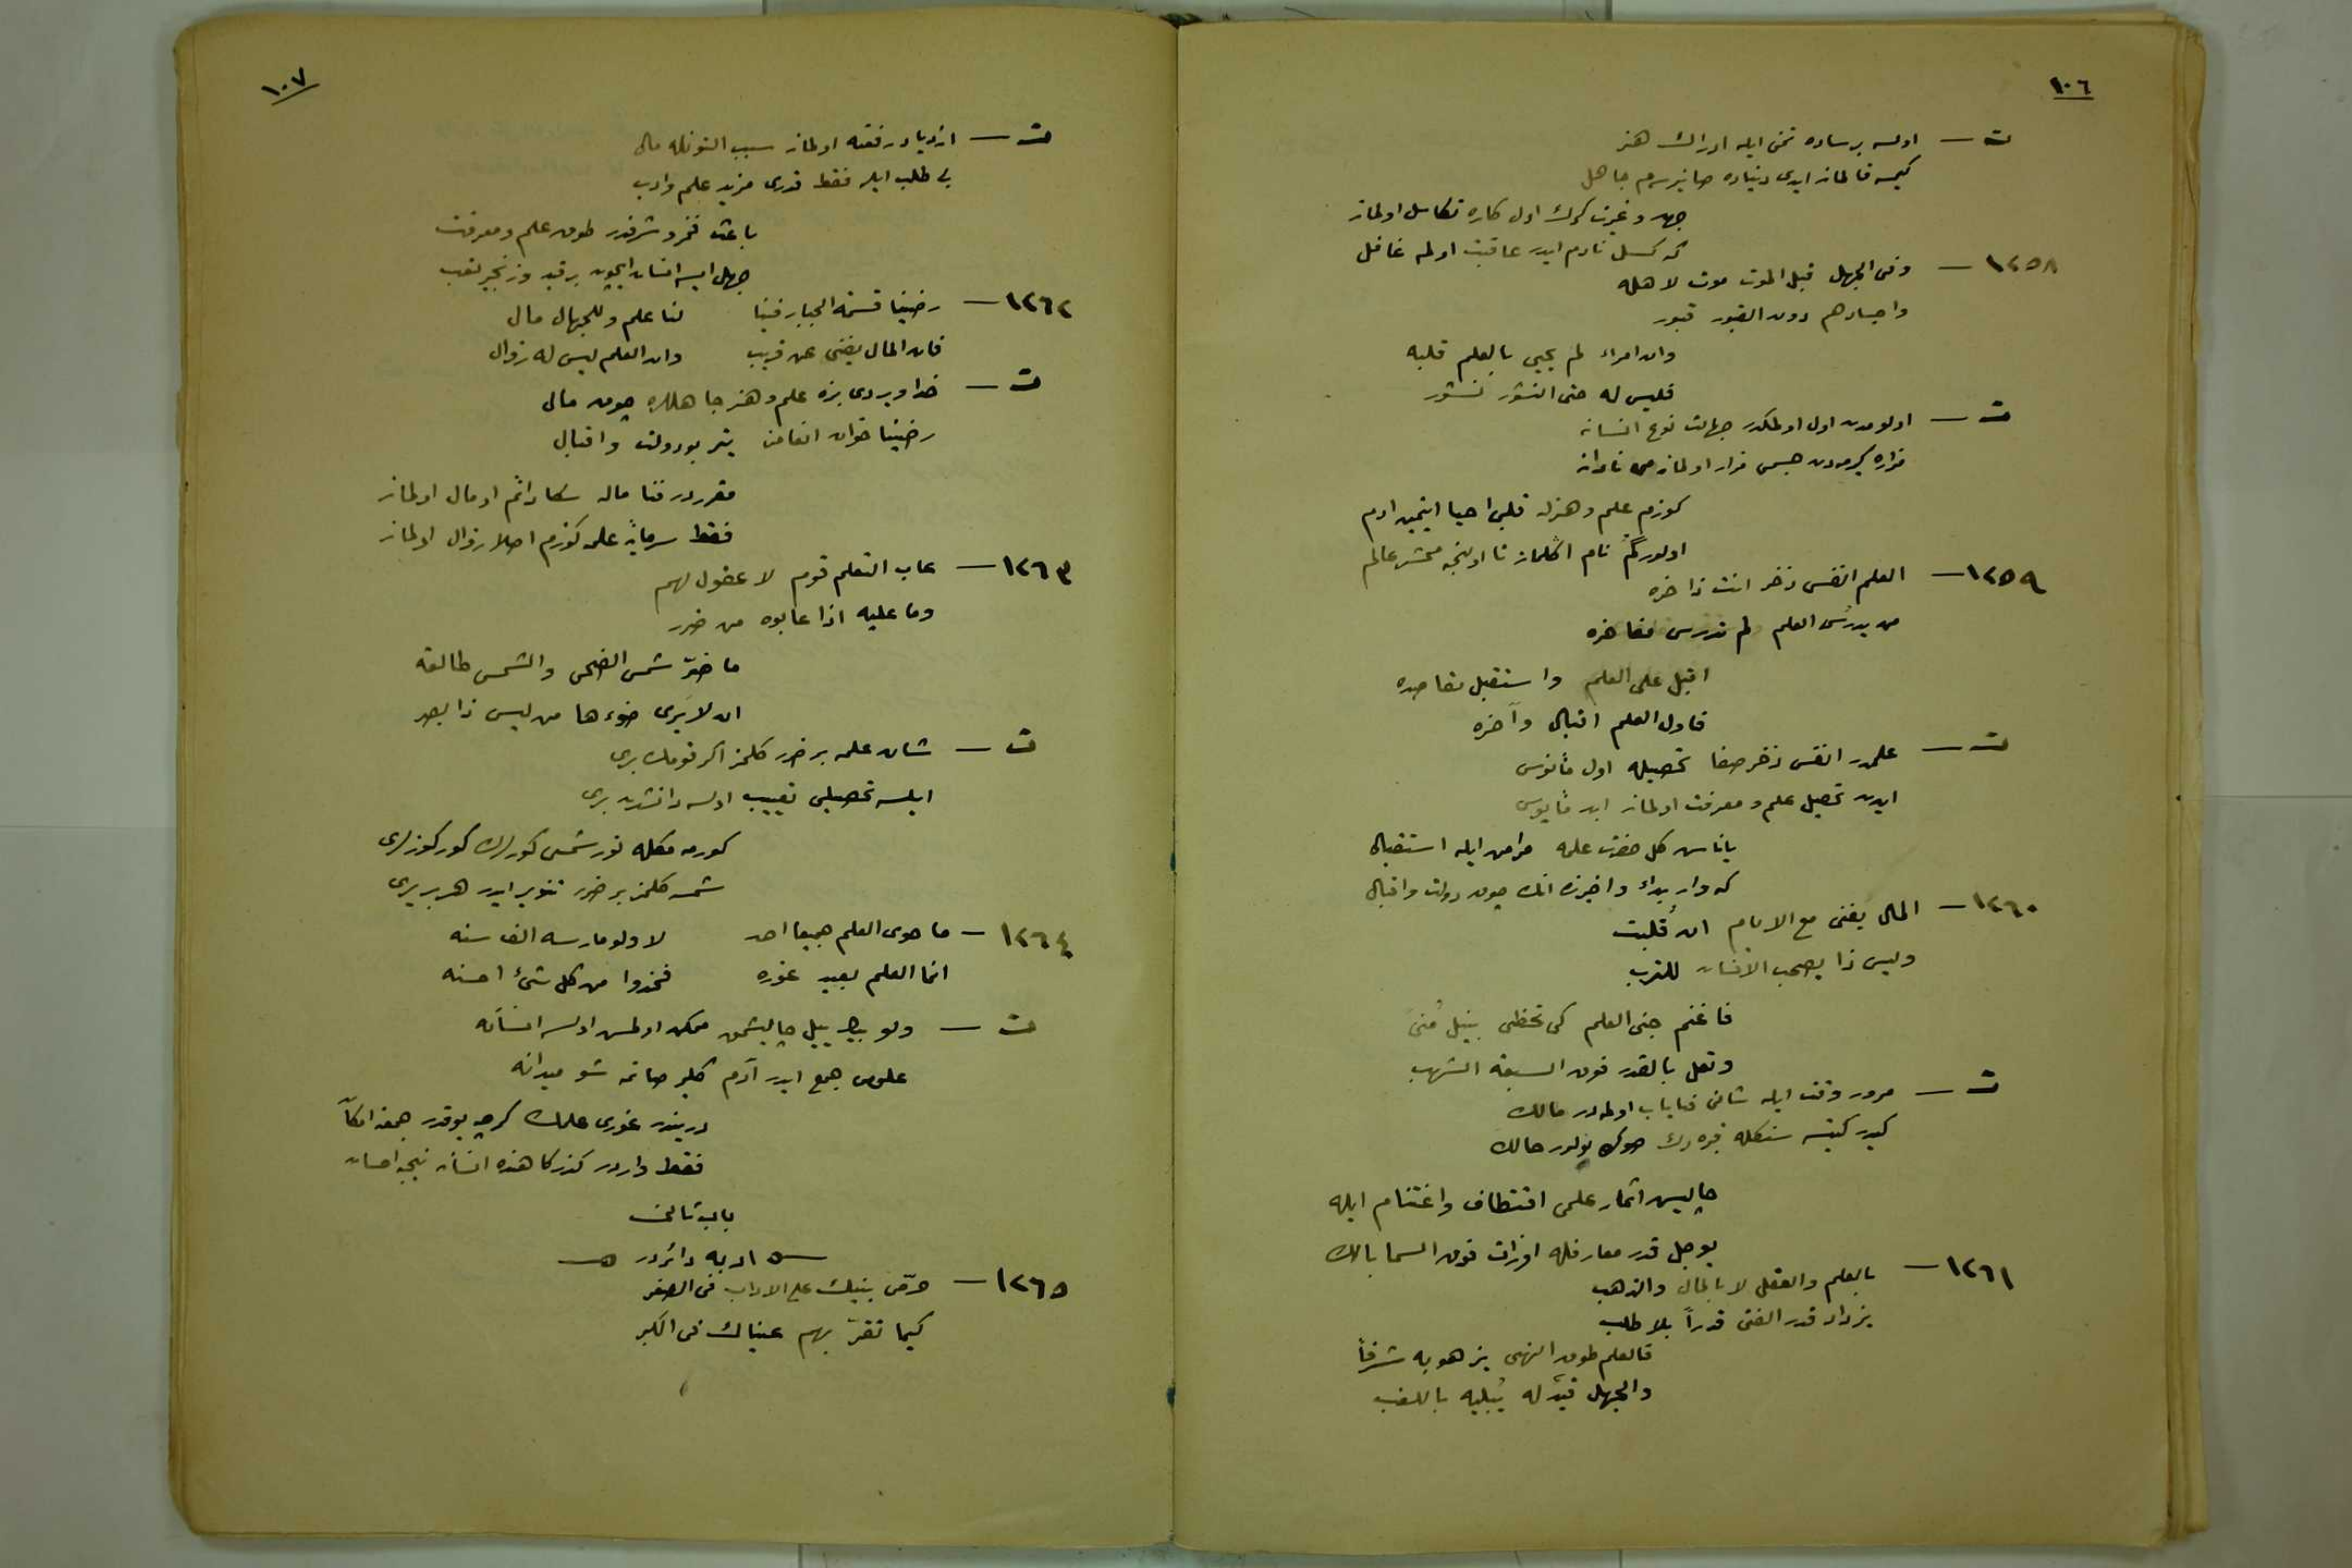 ١٠٦
ت — اولسه بر ساده تمنى ايله ادراك هنر
كيمسه قالماز ايدى دنياده صانيرم جاهل
جهد و غيرت كرك اول كاره تكاسل اولماز
كه كسل نادم ايدر عاقبت اولمه غافل
١٢٥٨ — وفى الجهل قبل الموت موت لاهله
واجسادهم دون القبور قبور
وان امراء لم يحيى بالعلم قلبه
فليس له حتى النشور نشور
ت — اولومدن اول اولمكدر جهالت نوع انسانه
مزاره كيرمدن جسمى مزار اولماز مى نادانه
كوزم علم و هنرله قلبى احيا ايتمين ادم
اولور گم نام اڭلماز تا اولنجه محشر عالم
١٢٥٩ — العلم انفس ذخر انت ذاخره
من يدرس العلم لم تدرس مفاخره
اقبل على العلم واستقبل مقاصده
فاول العلم اقبال وآخره
ت — علمدر انفس ذخر صفا تحصيله اول مأنوس
ايدن تحصيل علم و معرفت اولماز ابد مأيوس
ياناس كل حضرت علمه مرامى ايله استقبال
كه وار بدء و اخيرنده انك چوق دولت و اقبال
١٢٦٠ — المال يفنى مع الايام ان قُلبت
وليس ذا يصحب الانسان للترب
فاغنم جنى العلم كى تحظى بنيل مُنى
وتعل بالقدر فوق السبعة الشهب
ت — مرور وقت ايله شانى فناياب اولمه در مالك
كيدر كيتسه سنكله قبره دك صوك بولور حالك
چاليس اثمار علمى اقتطاف و اغتنام ايله
بوجل قدر معارفله اوزات فوق السما بالك
١٢٦١ — بالعلم والعقل لا بالمال والذهب
يزداد قدر الفتى قدراً بلا طلب
فالعلم طوق النهى يزهو به شرفاً
والجهل قيد له يُبليه باللغب
١٠٧
ت — ازدياد رفعته اولماز سبب التونله مال
بى طلب ايلر فقط قدرى مزيد علم و ادب
باعث فخر و شرفدر طوق علم و معرفت
جهل ايسه انسان ايچون بر قيد و زنجير تعب
١٢٦٢ — رضينا قسمة الجبار فينا لنا علم وللجهال مال
فان المال يفنى عن قريب وان العلم ليس له زوال
ت — خدا ويردى بزه علم و هنر جاهللره چوق مال
رضينا خوان انعامنه يتر بو دولت و اقبال
مقرردر فنا ماله سكا دائم او مال اولماز
فقط سرمايۀ علمه كوزم اصلا زوال اولماز
١٢٦٣ — عاب التعلم قوم لا عقول لهم
وما عليه اذا عابوه من ضرر
ما ضرّ شمس الضحى والشمس طالعة
ان لا يرى ضوءها من ليس ذا بصر
ت — شان علمه بر ضرر كلمز اكر قومك برى
ايلسه تحصيلى تعييب اولسه دانشدن برى
كورمه مكله نور شمسى كورلرك كور كوزلرى
شمسه كلمز بر ضرر تنوير ايدر هر بر يرى
١٢٦٤ — ما حوى العلم جميعا احد لا ولو مارسه الف سنه
انما العلم بعيد غوره فخذوا من كل شئ احسنه
ت — ولو بيڭ ييل چاليشمق ممكن اولمش اولسه انسانه
علومى جمع ايدر آدم كلير صانمه شو ميدانه
دريندر غورى علمك كرچه يوقدر جمعنه امكان
فقط واردر كذركاهنده انسانه نيجه احسان
باب ثالث
ادبه دائردر
١٢٦٥ — حرّض بنيك على الاداب فى الصغر
كيما تقرّ بهم عيناك فى الكبر